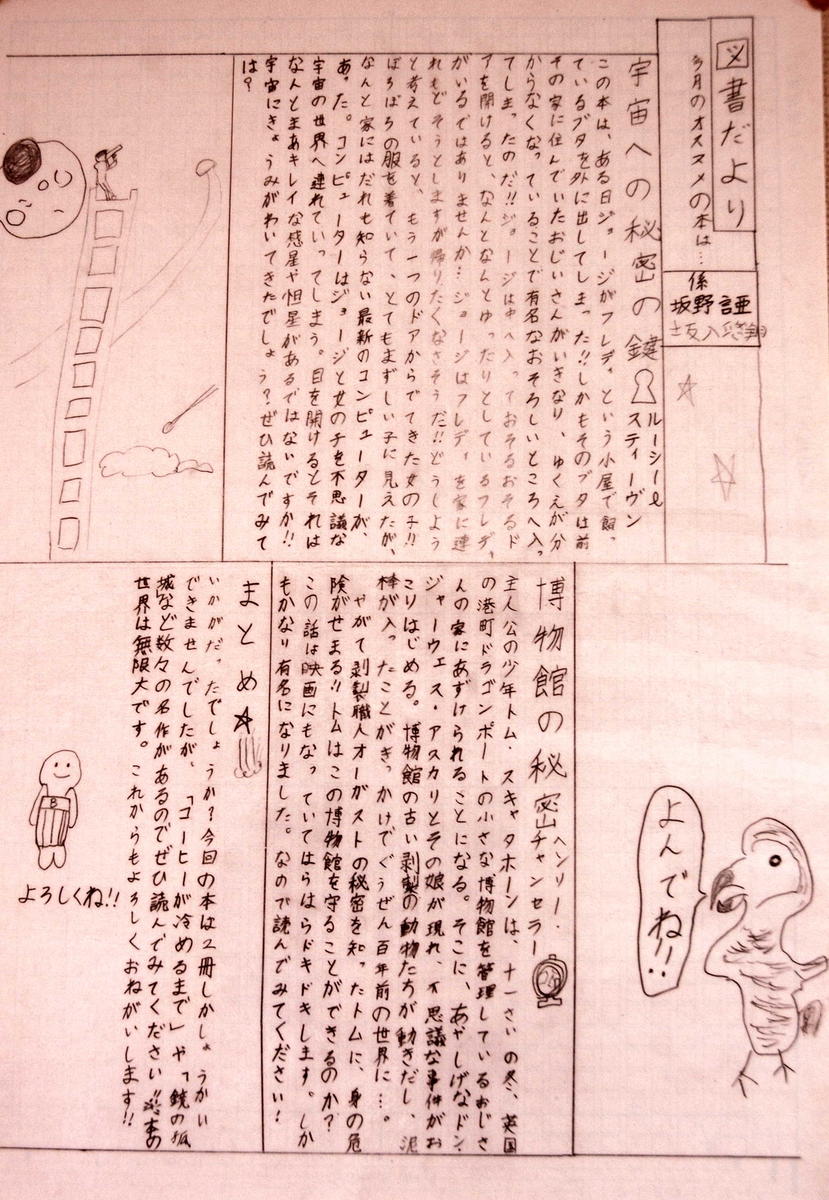 図書だより
今月のオススメの本は…
係
坂野 誣
宇宙への秘密の鍵
ルーシー&
スティーヴン
この本は、ある日ジョージがフレディという小屋で飼っ
ているブタを外に出してしまった!!しかもそのブタは前
その家に住んでいたおじいさんがいきなり、ゆくえが分
からなくなっていることで有名なおそろしいところへ入っ
てしまったのだ!!ジョージは中へ入っておそるおそるド
アを開けると、なんとなんとゆったりとしているフレディ
がいるではありませんか…ジョージはフレディを家に連
れもどそうとしますが帰りたくなさそうだ!!どうしよう
と考えていると、もう一つのドアからでてきた女の子!!
ぼろぼろの服を着ていて、とてもまずしい子に見えたが、
なんと家にはだれも知らない最新のコンピューターが、
あった。コンピューターはジョージと女の子を不思議な
宇宙の世界へ連れていってしまう。目を開けるとそれは
なんとまあキレイな惑星や恒星があるではないですか!!
宇宙にきょうみがわいてきたでしょう?ぜひ読んでみて
は?
よんでね!!
博物館の秘密
ヘンリー・
チャンセラー
主人公の少年トム・スキャタホーンは、十一さいの冬、英国
の港町ドラゴンポートの小さな博物館を管理しているおじさ
んの家にあずけられることになる。そこに、あやしげなドン・
ジャーウェス・アスカリとその娘が現れ、不思議な事件がお
こりはじめる。博物館の古い剥製の動物たちが動きだし、泥
棒が入ったことがきっかけでぐうぜん百年前の世界に…。
やがて剥製職人オーガストの秘密を知ったトムに、身の危
険がせまる!!トムはこの博物館を守ることができるのか?
この話は映画にもなっていてはらはらドキドキします。しか
もかなり有名になりました。なので読んでみてください!
まとめ☆
いかがだったでしょうか?今回の本は2冊しかしょうかい
できませんでしたが、「コーヒーが冷めるまで」や「鏡の孤
城」など数々の名作があるのでぜひ読んでみてください!!本の
世界は無限大です。これからもよろしくおねがいします!!
B
よろしくね!!